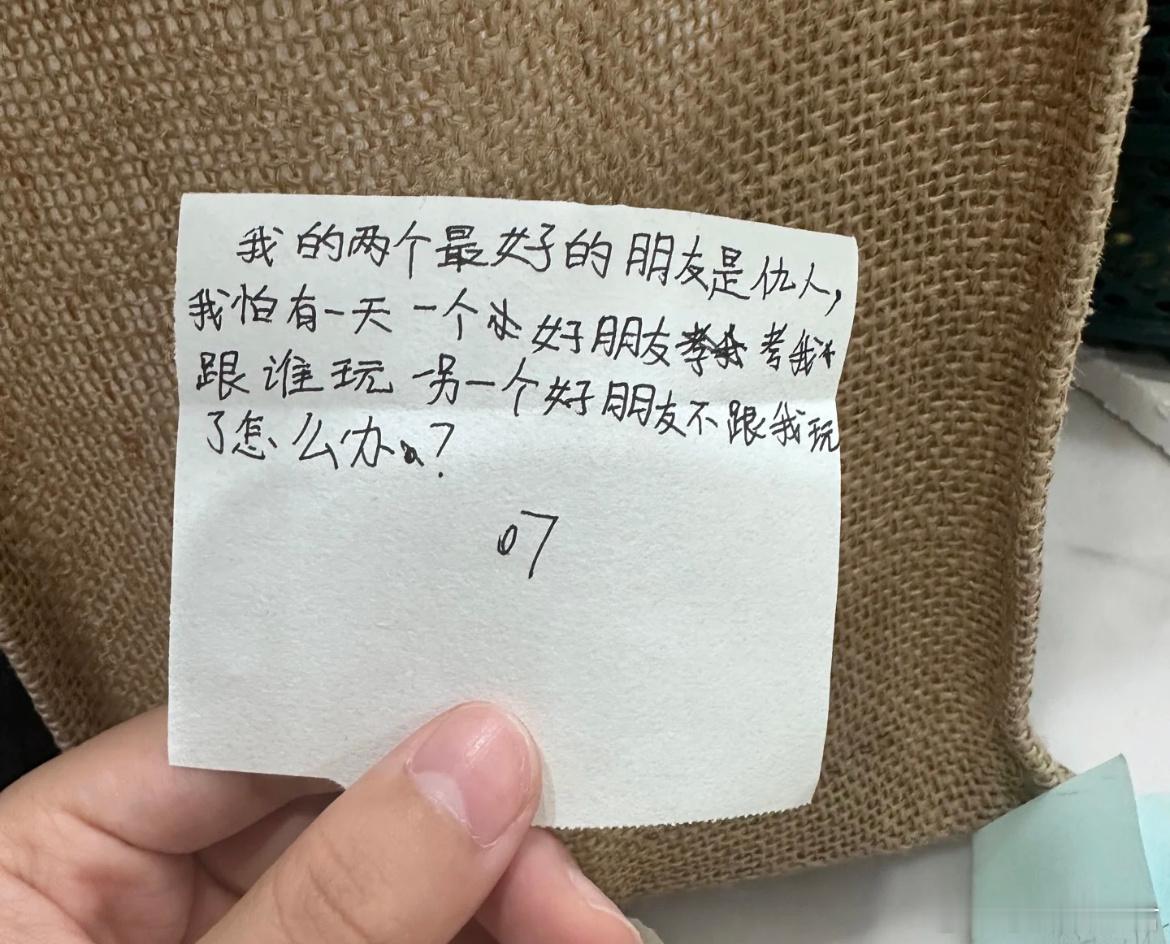 我的两个最好的朋友是仇人,
我怕有一天一个好朋友考我
跟谁玩另一个好朋友不跟我玩
了怎么办?
07